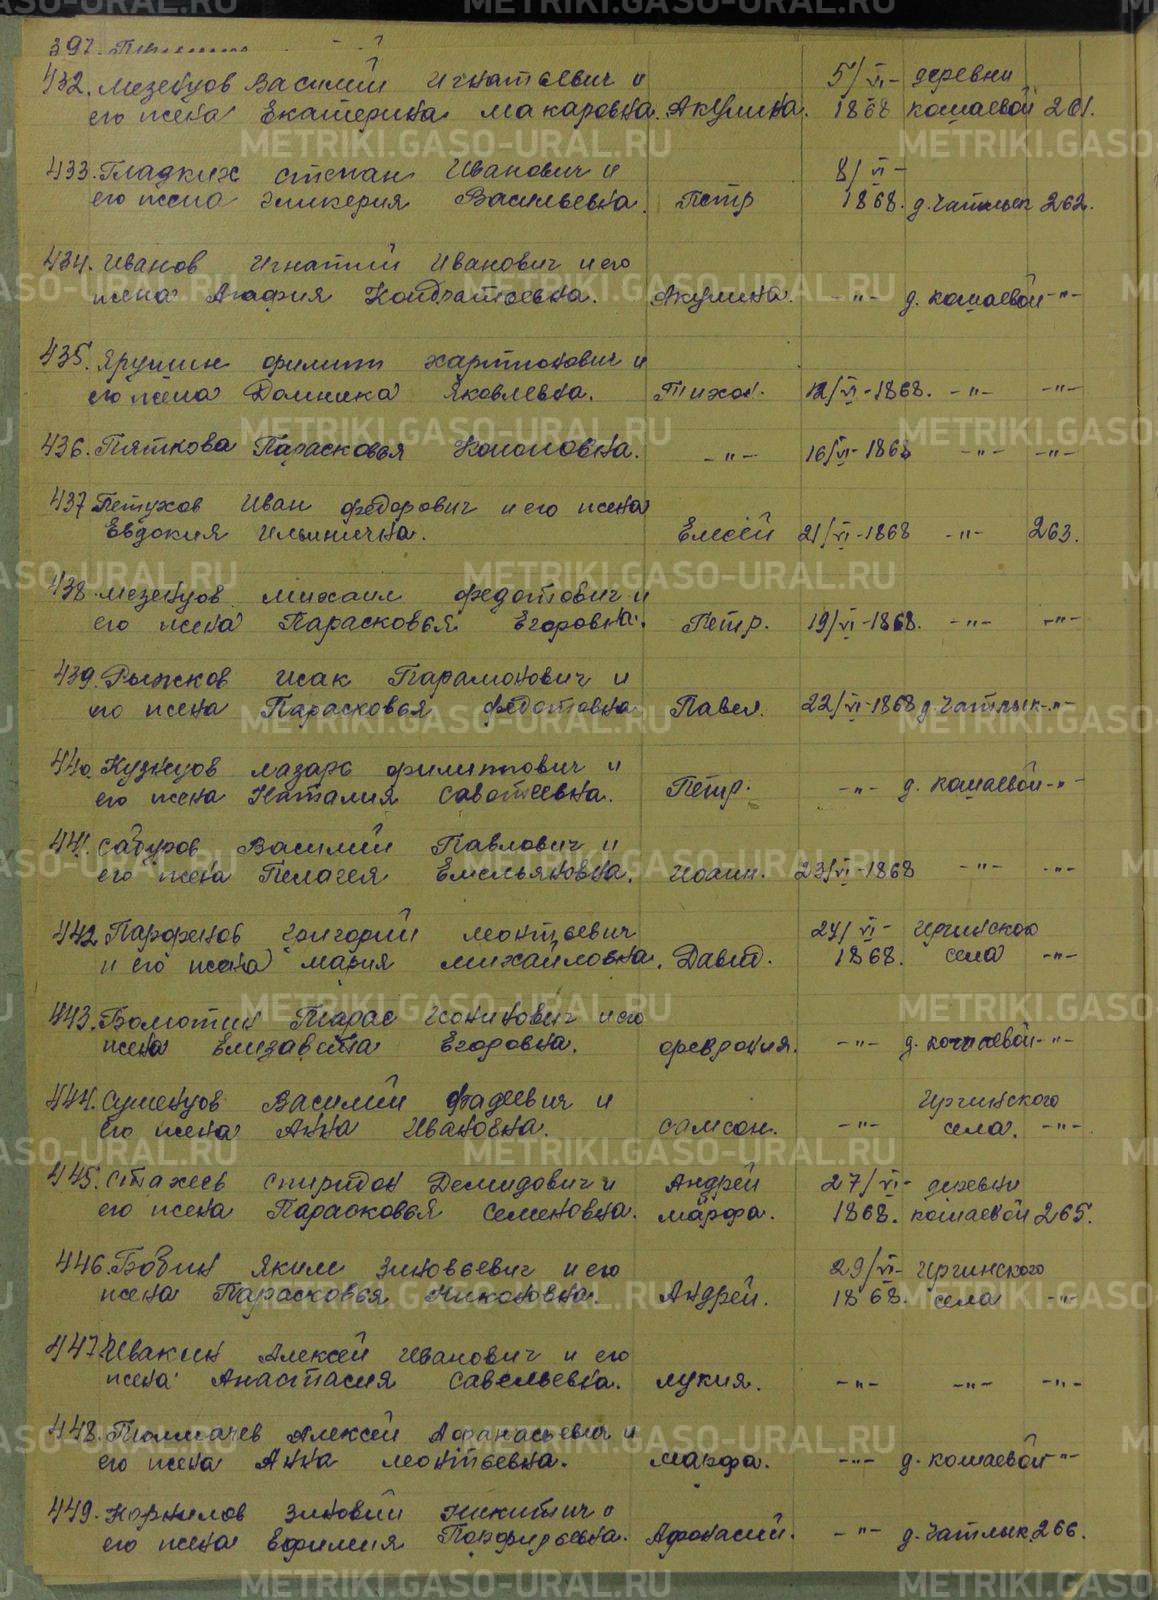 397.
432. Мезенцов Василий Игнатьевич и 5/VI- деревни
его жена Екатерина Макаровна. Акулина. 1868 Кошаевой 261.
433. Гладких Степан Иванович и 8/VI-
его жена Гликерия Васильевна. Петр 1868. д. Чатлык 262.
434. Иванов Игнатий Иванович и его
жена Агафия Кондратьевна. Акулина. -"- д. Кошаевой -"-
435. Ярушин Филипп Харитонович и
его жена Домника Яковлевна. Тихон. 12/VI-1868. -"- -"-
436. Пяткова Парасковья Кононовна. -"- 16/VI-1868 -"- -"-
437 Петухов Иван Федорович и его жена
Евдокия Ильинична. Елисей 21/VI-1868 -"- 263.
438. Мезенцов Михаил Федотович и
его жена Парасковья Егоровна. Петр. 19/VI-1868. -"- -"-
439. Рыжков Исак Парамонович и
его жена Парасковья Федотовна Павел. 22/VI-1868 д. Чатлык -"-
440. Кузнецов Лазарь Филиппович и
его жена Наталия Савотеевна. Петр. -"- д. Кошаевой -"-
441. Сабуров Василий Павлович и
его жена Пелагея Емельяновна. Иоанн. 23/VI-1868 -"- -"-
442. Парфенов Григорий Леонтьевич 24/VI- Иргинского
и его жена Мария Михайловна. Давид. 1868. села -"-
443. Болотин Тарас Ионинович и его
жена Елизавета Егоровна. Феврония. -"- д. Кошаевой -"-
444. Сушенцов Василий Фадеевич и Иргинского
его жена Анна Ивановна. Самсон. -"- села. -"-
445. Стахеев Спиридон Демидович и Андрей 27/VI- деревни
его жена Парасковья Семеновна. Марфа. 1868. Кошаевой 265.
446. Бабин Яким Зиновьевич и его 29/VI- Иргинского
жена Парасковья Никоновна. Андрей. 1868. села -"-
447. Ивакин Алексей Иванович и его
жена Анастасия Савельевна. Лукия. -"- -"- -"-
448. Толмачев Алексей Афанасьевич и
его жена Анна Леонтьевна. Марфа. -"- д. Кошаевой -"-
449. Корнилов Зиновий Никитич и
его жена Ефимия Порфирьевна. Афонасий. -"- д. Чатлык 266.
METRIKI.GASO-URAL.RU